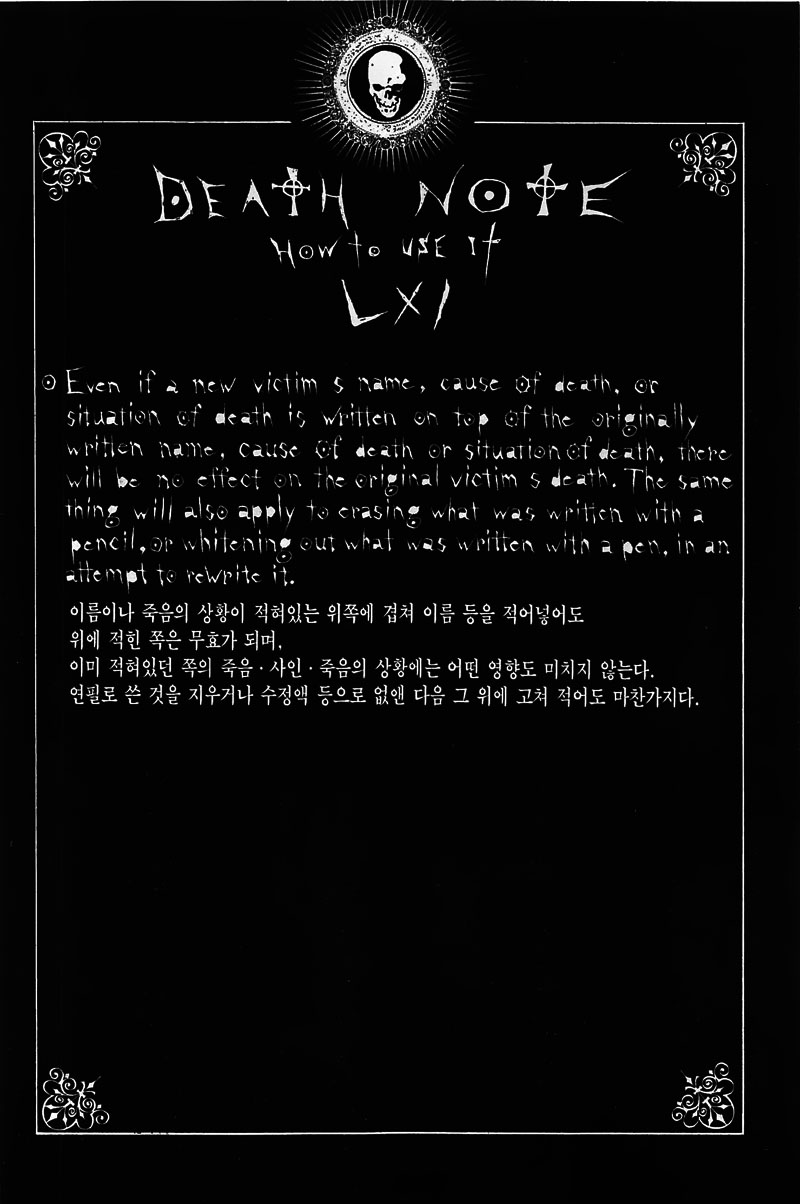 DEATH NOTE
HOW to USE It
LXI
Even if a new victim s name, cause of death, or
situation of death is written on top of the originally
written name, cause of death or situation of death, there
will be no effect on the original victim s death. The same
thing will also apply to erasing what was written with a
pencil, or whitening out what was written with a pen, in an
attempt to rewrite it.
이름이나 죽음의 상황이 적혀있는 위쪽에 겹쳐 이름 등을 적어넣어도
위에 적힌 쪽은 무효가 되며,
이미 적혀있던 쪽의 죽음·사인·죽음의 상황에는 어떤 영향도 미치지 않는다.
연필로 쓴 것을 지우거나 수정액 등으로 없앤 다음 그 위에 고쳐 적어도 마찬가지다.